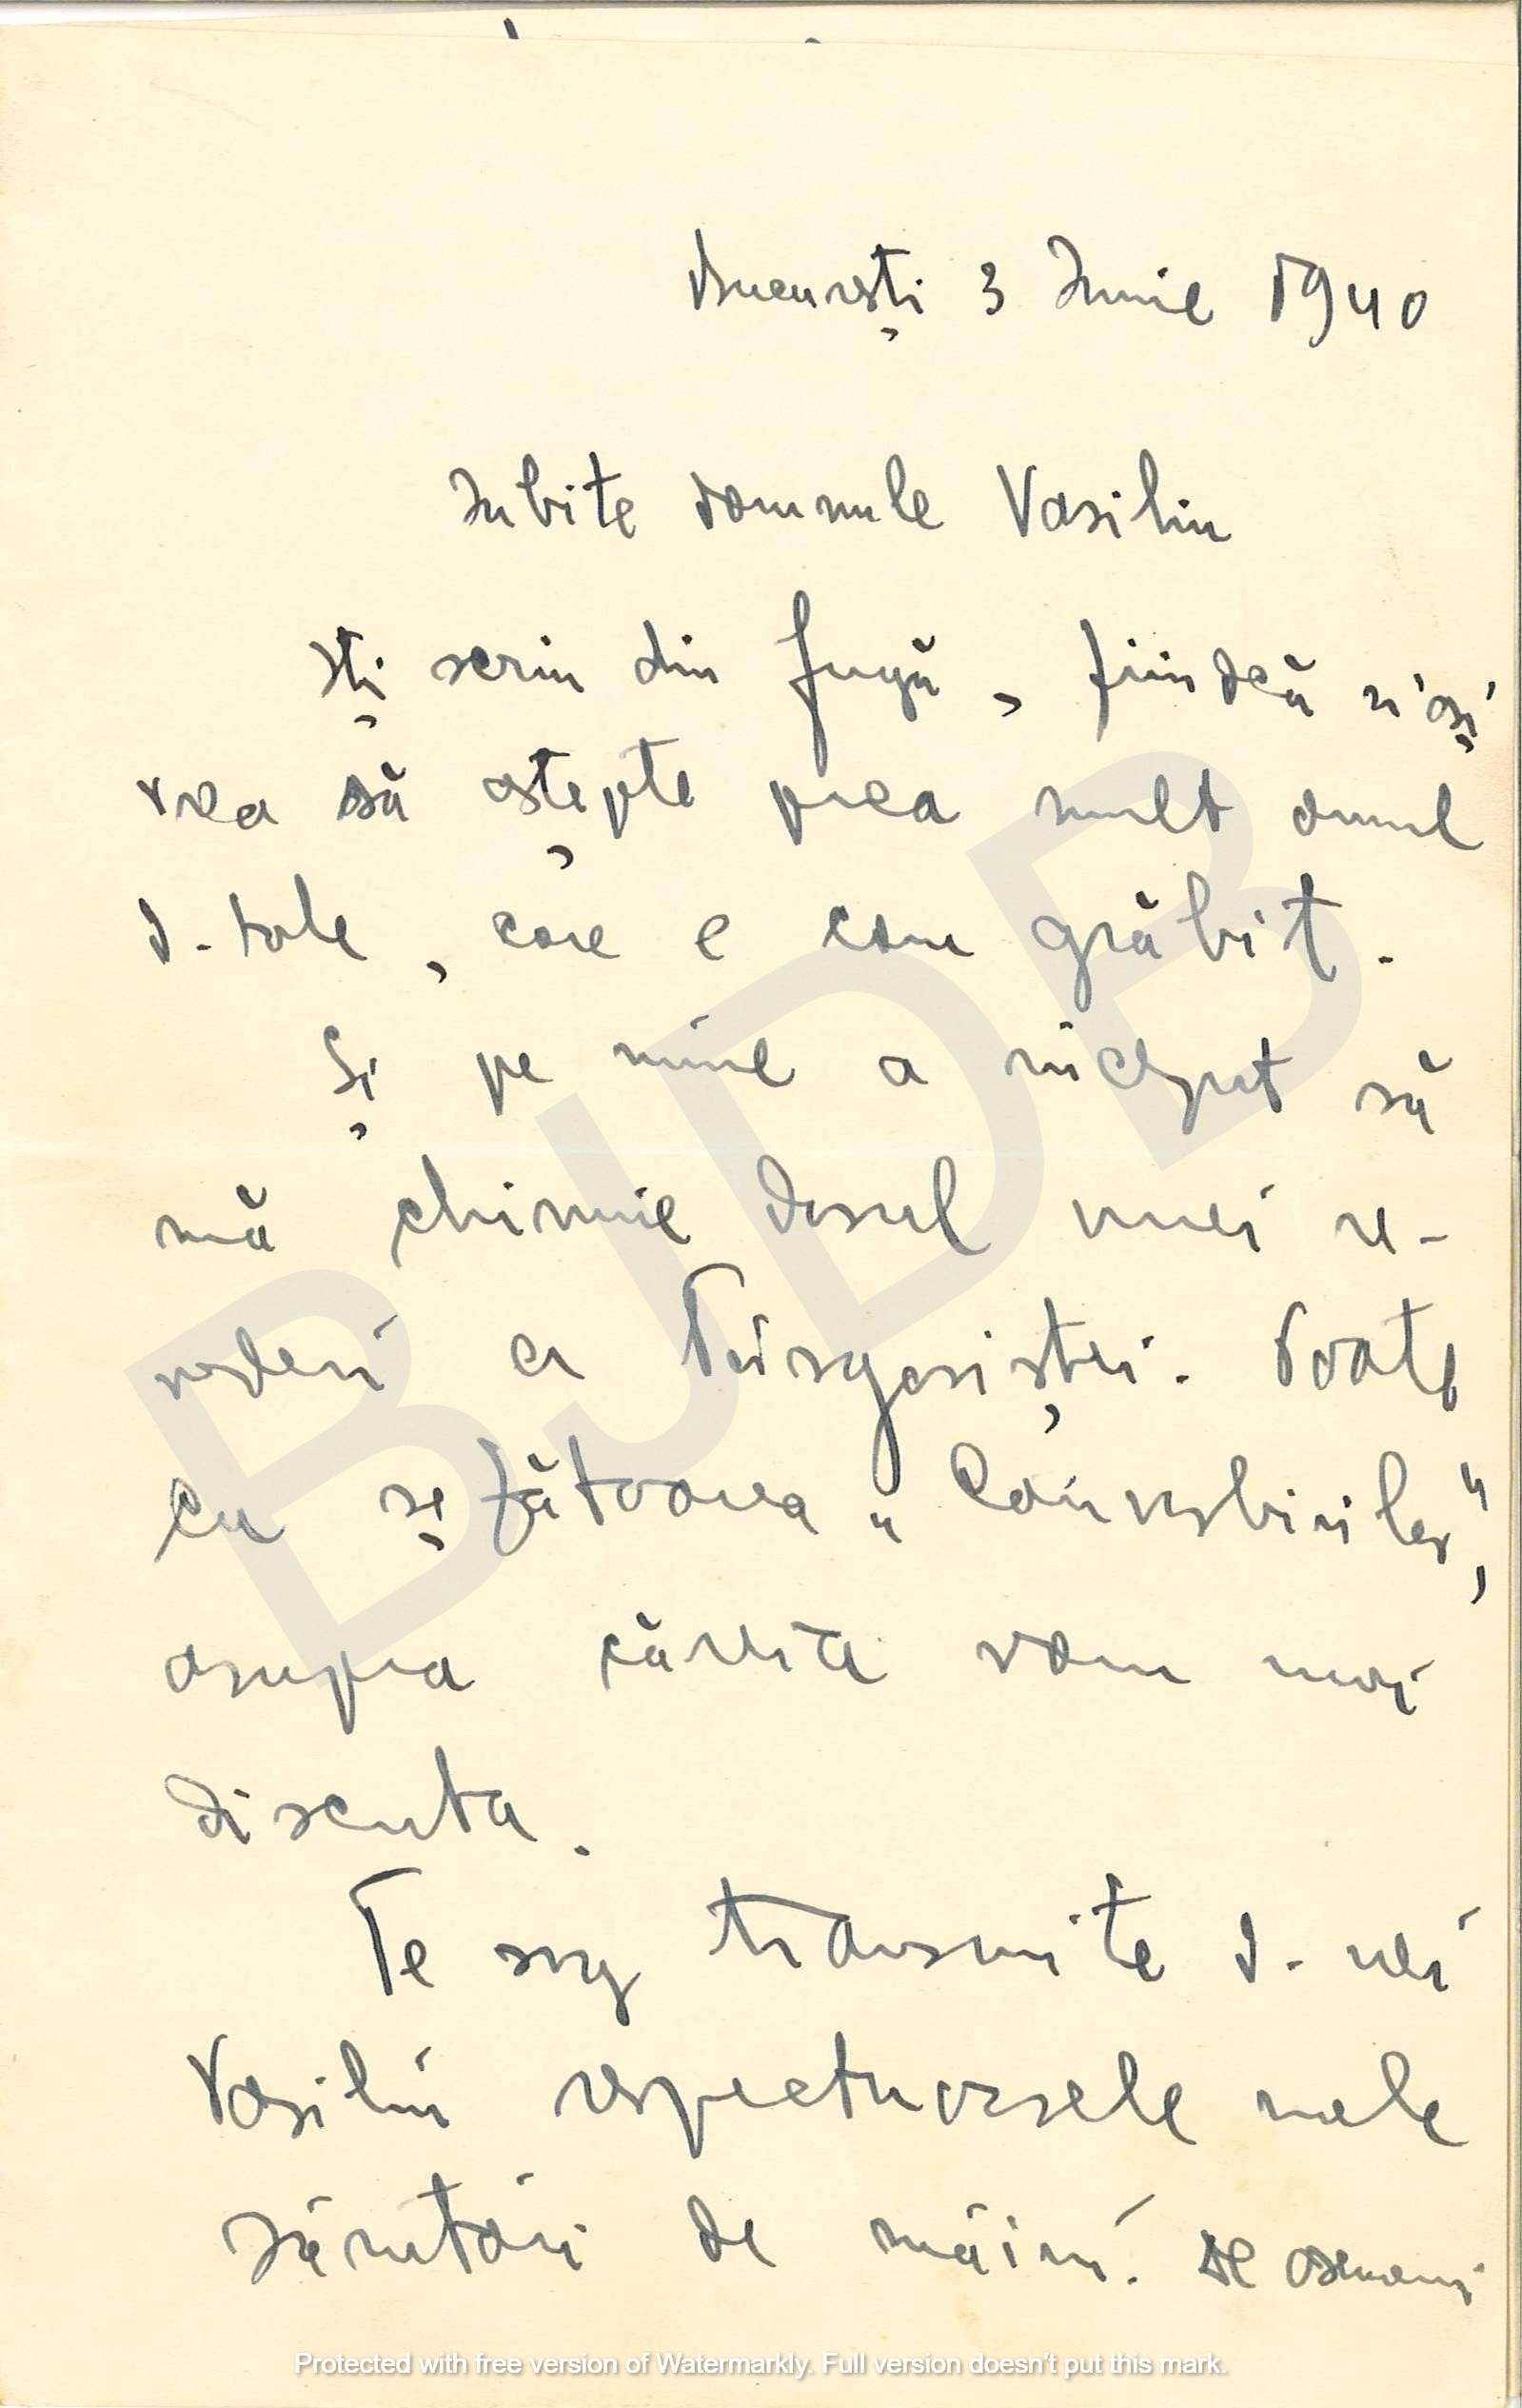 București 3 Iunie 1940
Iubite domnule Vasiliu
Iți scriu din fugă, fiindcă n'aș
vrea să aștepte prea mult omul
d-tale, care e cam grăbit.
Și pe mine a început să
mă chinuie dorul unei re-
vederi a Târgoviștei. Poate
cu șezătoarea „Convorbirilor",
asupra căreia vom mai
discuta.
Te rog transmite d-nei
Vasiliu respectuoasele mele
sărutări de mâini. De asemeni
BJDB
Protected with free version of Watermarkly. Full version doesn't put this mark.